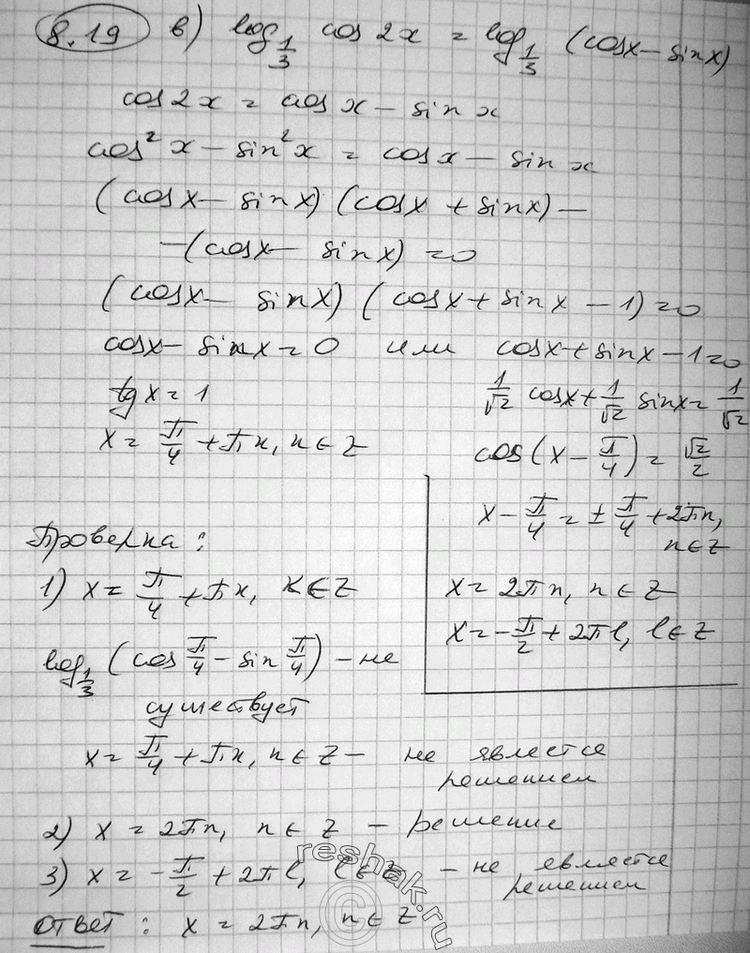 8.19 в) log_{1/3} cos 2x = log_{1/3} (cosx - sinx)
cos 2x = cos x - sin x
cos² x - sin² x = cos x - sin x
(cosx - sinx) (cosx + sinx) -
-(cosx - sinx) = 0
(cosx - sinx) (cosx + sinx - 1) = 0
cosx - sinx = 0 или cosx + sinx - 1 = 0
tg x = 1
x = π/4 + πn, n ∈ Z
1/√2 cosx + 1/√2 sinx = 1/√2
cos(x - π/4) = √2/2
x - π/4 = ± π/4 + 2πn,
n ∈ Z
x = 2πn, n ∈ Z
x = -π/2 + 2πl, l ∈ Z
Проверка:
1) x = π/4 + πn, n ∈ Z
log_{1/3} (cos π/4 - sin π/4) - не
существует
x = π/4 + πn, n ∈ Z - не является
решением
2) x = 2πn, n ∈ Z - решение
3) x = -π/2 + 2πl, l ∈ Z - не является
решением
Ответ: x = 2πn, n ∈ Z
©reshak.ru